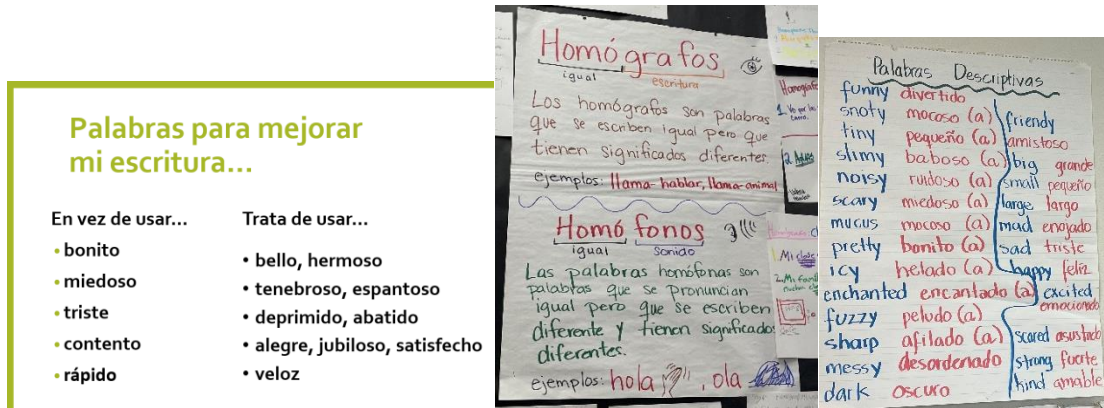 Palabras para mejorar
mi escritura...
En vez de usar...
• bonito
• miedoso
• triste
• contento
• rápido
Trata de usar...
• bello, hermoso
• tenebroso, espantoso
• deprimido, abatido
• alegre, jubiloso, satisfecho
• veloz
Homógrafos
igual escritura
Los homógrafos son palabras
que se escriben igual pero que
tienen significados diferentes.
ejemplos: llama-hablar, llama-animal
Homófonos
igual sonido
Las palabras homófonas son
palabras que se pronuncian
igual pero que se escriben
diferente y tienen significados
diferentes.
ejemplos: hola, ola
Palabras Descriptivas
funny divertido
snoty mocoso (a)
tiny pequeño (a)
slimy baboso (a)
noisy ruidoso (a)
scary miedoso (a)
mucus mocoso (a)
pretty bonito (a)
icy helado (a)
enchanted encantado (a)
fuzzy peludo (a)
sharp afilado (a)
messy desordenado
dark oscuro
friendy
amistoso
big grande
small pequeño
large largo
mad enojado
sad triste
happy feliz
excited
emocionado
scared asustado
strong fuerte
kind amable